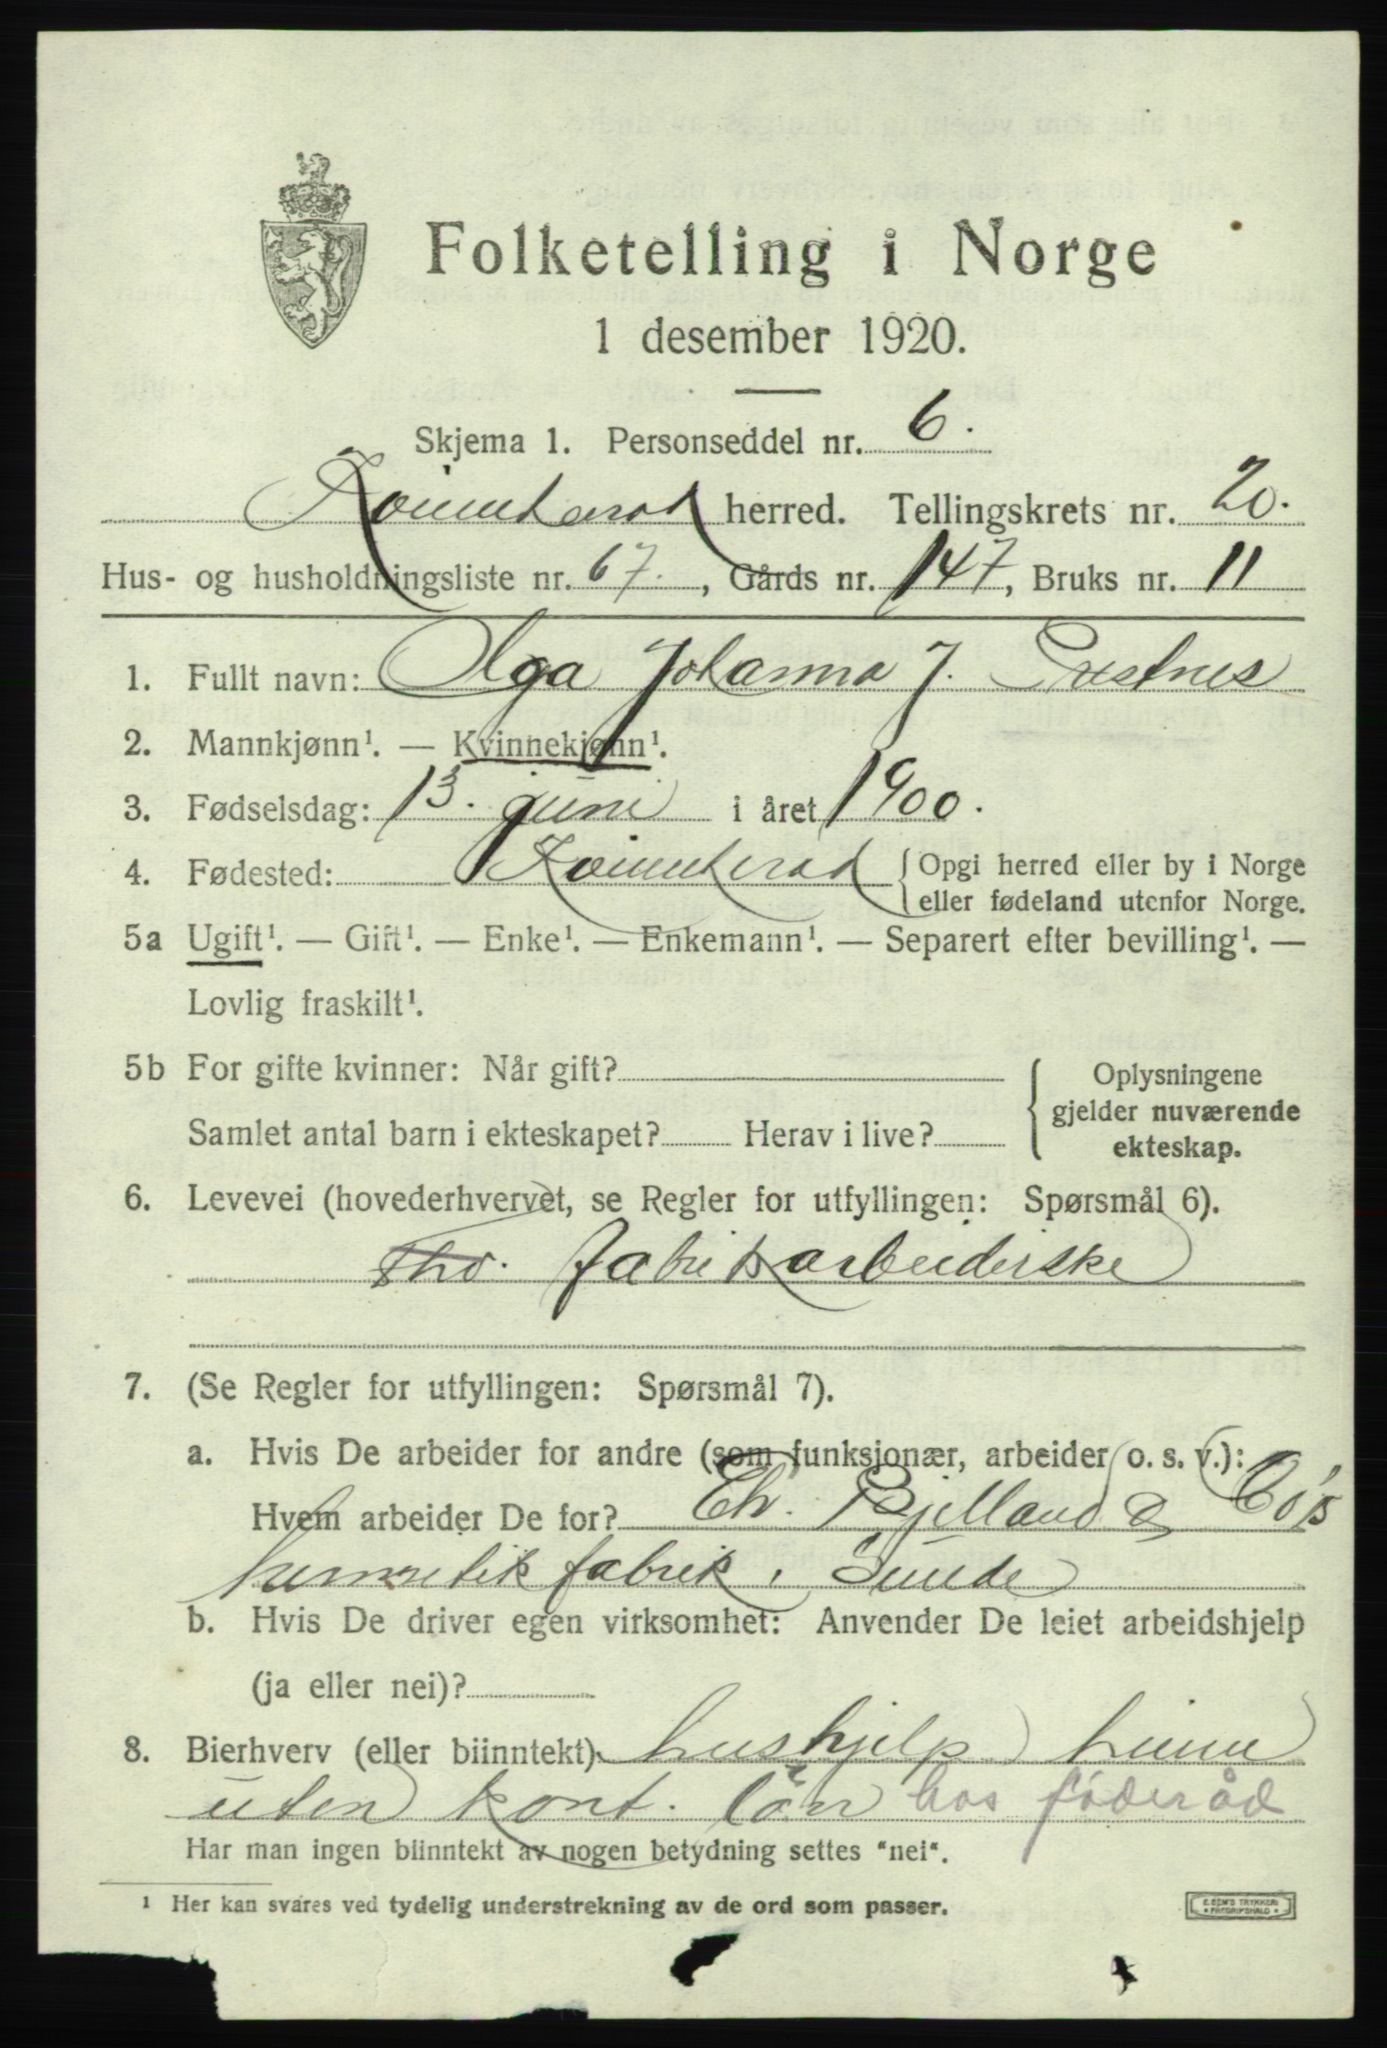 Folketelling i Norge
1 desember 1920.
Skjema 1. Personseddel nr. 6.
Kvinnherad herred. Tellingskrets nr. 20.
Hus- og husholdningsliste nr. 67., Gårds nr. 147, Bruks nr. 11
1. Fullt navn: Olga Johanna J. Prestnes
2. Mannkjønn¹. — Kvinnekjønn¹.
3. Fødselsdag: 13. juni i året 1900.
4. Fødested: Kvinnherad { Opgi herred eller by i Norge
eller fødeland utenfor Norge.
5a Ugift¹. — Gift¹. — Enke¹. — Enkemann¹. — Separert efter bevilling¹. —
Lovlig fraskilt¹.
5b For gifte kvinner: Når gift? { Oplysningene
gjelder nuværende
Samlet antal barn i ekteskapet? Herav i live? ekteskap.
6. Levevei (hovederhvervet, se Regler for utfyllingen: Spørsmål 6).
fabrikarbeiderske
7. (Se Regler for utfyllingen: Spørsmål 7).
a. Hvis De arbeider for andre (som funksjonær, arbeider o. s. v.):
Hvem arbeider De for? Chr. Bjelland & Co's
hermetikfabrik, Sunde
b. Hvis De driver egen virksomhet: Anvender De leiet arbeidshjelp
(ja eller nei)?
8. Bierhverv (eller biinntekt) hushjelp heime
uten kont. løn hos föderåd
Har man ingen biinntekt av nogen betydning settes "nei".
¹ Her kan svares ved tydelig understrekning av de ord som passer.